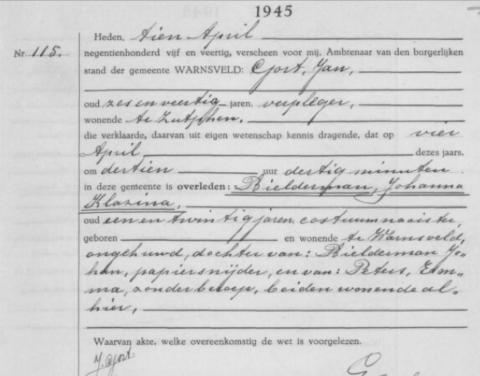 1945
Heden, tien April
Nr. 115. negentienhonderd vijf en veertig, verscheen voor mij, Ambtenaar van den burgerlijken
stand der gemeente WARNSVELD: Gort, Jan,
oud zes en veertig jaren, verpleger,
wonende te Zutphen,
die verklaarde, daarvan uit eigen wetenschap kennis dragende, dat op vier
April dezes jaars,
om dertien uur dertig minuten
in deze gemeente is overleden: Bielderman, Johanna
Klazina,
oud een en twintig jaren, costuumnaaister,
geboren en wonende te Warnsveld,
ongehuwd, dochter van: Bielderman Jo-
han, papiersnijder, en van: Peters, Em-
ma, zonder beroep, beiden wonende al-
hier,
Waarvan akte, welke overeenkomstig de wet is voorgelezen.
J. Gort.